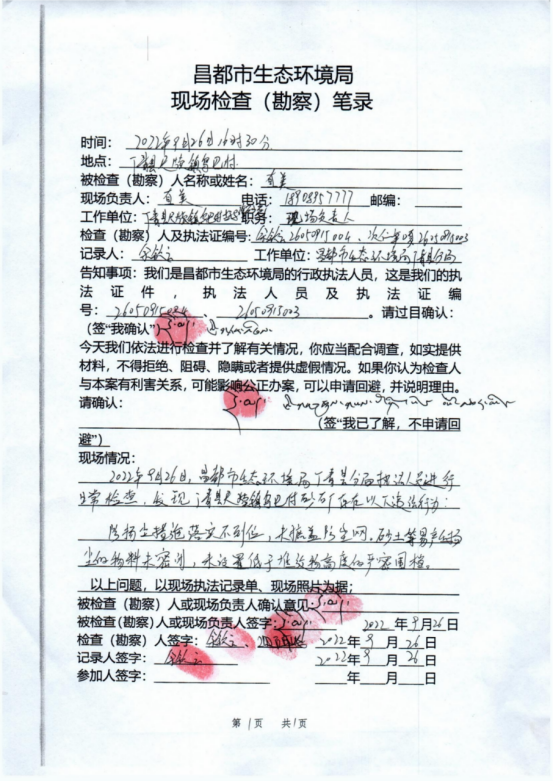 昌都市生态环境局
现场检查（勘察）笔录
时间：2022年9月26日16时30分
地点：丁青县尺牍镇乌巴村
被检查（勘察）人名称或姓名：
现场负责人： 电话：18908957777 邮编：
工作单位：丁青县尺牍镇乌巴村 职务：现场负责人
检查（勘察）人及执法证编号： 26050915004、 26050915003
记录人： 工作单位：昌都市生态环境局丁青县分局
告知事项：我们是昌都市生态环境局的行政执法人员，这是我们的执
法证件，执法人员及执法证编
号：26050915004、26050915003。请过目确认：
(签“我确认”)
今天我们依法进行检查并了解有关情况，你应当配合调查，如实提供
材料，不得拒绝、阻碍、隐瞒或者提供虚假情况。如果你认为检查人
与本案有利害关系，可能影响公正办案，可以申请回避，并说明理由。
请确认：
(签“我已了解，不申请回
避”)
现场情况：
2022年9月26日，昌都市生态环境局丁青县分局执法人员进行
日常检查，发现丁青县尺牍镇乌巴村砂石厂存在以下违法行为：
防扬尘措施落实不到位，未覆盖防尘网。砂土等易产生扬
尘的物料未密闭，未设置低于堆放物高度的严密围挡。
以上问题，以现场执法记录单、现场照片为据；
被检查（勘察）人或现场负责人确认意见：
被检查(勘察)人或现场负责人签字： 2022年9月26日
检查（勘察）人签字： 2022年9月26日
记录人签字： 2022年9月26日
参加人签字： 年 月 日
第1页 共1页